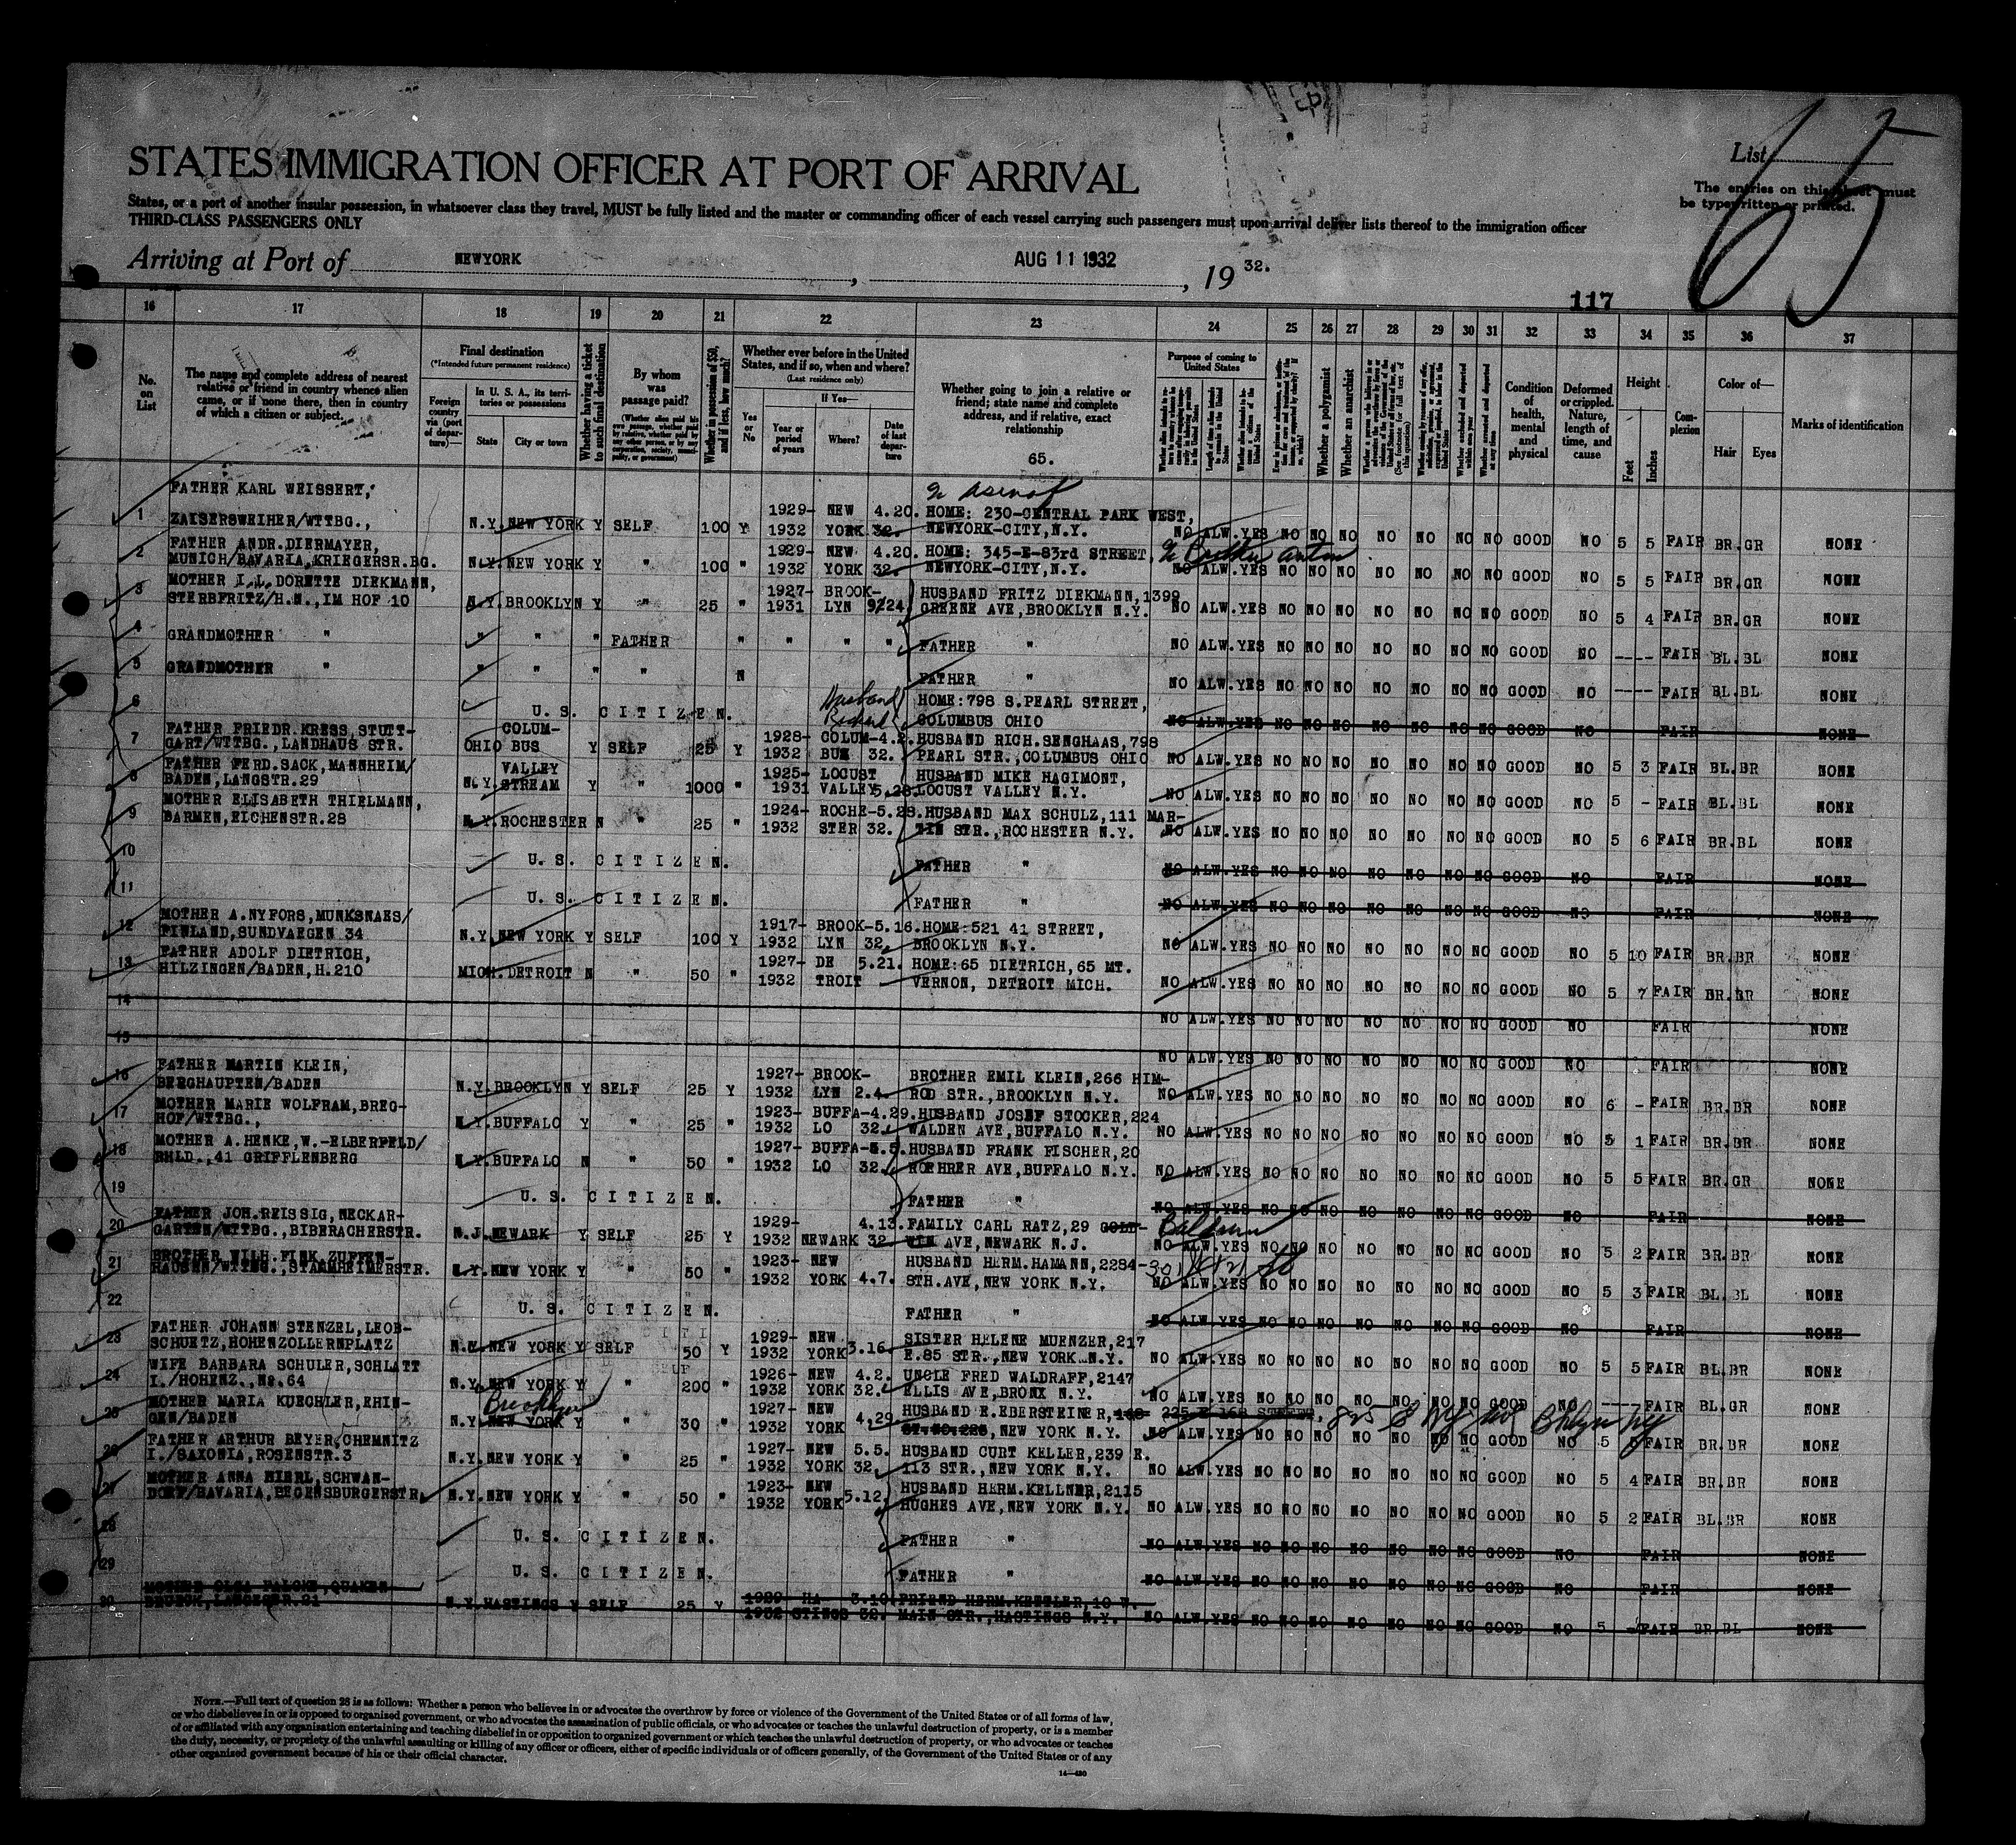 List
65
The entries on this sheet must
be typewritten or printed.
STATES IMMIGRATION OFFICER AT PORT OF ARRIVAL
States, or a port of another insular possession, in whatsoever class they travel, MUST be fully listed and the master or commanding officer of each vessel carrying such passengers must upon arrival deliver lists thereof to the immigration officer
THIRD-CLASS PASSENGERS ONLY
Arriving at Port of NEWYORK, AUG 11 1932, 19 32.
117
16 17 18 19 20 21 22 23 24 25 26 27 28 29 30 31 32 33 34 35 36 37
No. on List
The name and complete address of nearest relative or friend in country whence alien came, or if none there, then in country of which a citizen or subject.
Final destination
(*Intended future permanent residence)
Foreign country via (port of departure)—
In U. S. A., its territories or possessions
State City or town
Whether having a ticket to such final destination
By whom was passage paid?
Whether in possession of $50, and if less, how much?
Whether ever before in the United States, and if so, when and where?
(Last residence only)
Yes or No
If Yes—
Year or period of years
Where?
Date of last departure
Whether going to join a relative or friend; state name and complete address, and if relative, exact relationship
65.
Purpose of coming to United States
Whether a polygamist
Whether an anarchist
Condition of health, mental and physical
Deformed or crippled. Nature, length of time, and cause
Height
Feet Inches
Complexion
Color of—
Hair Eyes
Marks of identification
FATHER KARL WEISSERT,
1 ZAISERSWEIHER/WTTBG., N.Y. NEW YORK Y SELF 100 Y 1929-1932 NEW YORK 4.20.32. HOME: 230-CENTRAL PARK WEST, NEWYORK-CITY, N.Y. NO ALW. YES NO NO NO NO NO NO NO GOOD NO 5 5 FAIR BR. GR NONE
2 FATHER ANDR. DIERMAYER, MUNICH/BAVARIA, KRIEGERSR.BG. N.Y. NEW YORK Y " 100 " 1929-1932 NEW YORK 4.20.32. HOME: 345-E-83rd STREET, NEWYORK-CITY, N.Y. Brother Anton NO ALW. YES NO NO NO NO NO NO NO GOOD NO 5 5 FAIR BR. GR NONE
3 MOTHER I.L. DORETTE DIEKMANN, STERBFRITZ/H.N., IM HOF 10 N.Y. BROOKLYN Y " 25 " 1927-1931 BROOKLYN 9/24 HUSBAND FRITZ DIEKMANN, 1399 GREENE AVE, BROOKLYN N.Y. NO ALW. YES NO NO NO NO NO NO NO GOOD NO 5 4 FAIR BR. GR NONE
4 GRANDMOTHER " " " " FATHER " " " " FATHER " NO ALW. YES NO NO NO NO NO NO NO GOOD NO ---- FAIR BL. BL NONE
5 GRANDMOTHER " " " " " N FATHER " NO ALW. YES NO NO NO NO NO NO NO GOOD NO ---- FAIR BL. BL NONE
6 U. S. CITIZEN. Husband HOME: 798 S. PEARL STREET, COLUMBUS OHIO NO ALW. YES NO NO NO NO NO NO NO GOOD NO FAIR NONE
7 FATHER FRIEDR. KRESS, STUTTGART/WTTBG., LANDHAUS STR. OHIO COLUMBUS Y SELF 25 Y 1928-1932 COLUMBUS 4.2.32. HUSBAND RICH. SENGHAAS, 798 PEARL STR., COLUMBUS OHIO NO ALW. YES NO NO NO NO NO NO NO GOOD NO 5 3 FAIR BL. BR NONE
8 FATHER FERD. SACK, MANNHEIM/BADEN, LANGSTR. 29 N.Y. VALLEY STREAM Y " 1000 " 1925-1931 LOCUST VALLEY 5.28. HUSBAND MIKE HAGIMONT, LOCUST VALLEY N.Y. NO ALW. YES NO NO NO NO NO NO NO GOOD NO 5 - FAIR BL. BL NONE
9 MOTHER ELISABETH THIELMANN, BARMEN, EICHENSTR. 28 N.Y. ROCHESTER N " 25 " 1924-1932 ROCHESTER 5.28.32. HUSBAND MAX SCHULZ, 111 MARTIN STR., ROCHESTER N.Y. NO ALW. YES NO NO NO NO NO NO NO GOOD NO 5 6 FAIR BR. BL NONE
10 U. S. CITIZEN. FATHER " NO ALW. YES NO NO NO NO NO NO NO GOOD NO FAIR NONE
11 U. S. CITIZEN. FATHER " NO ALW. YES NO NO NO NO NO NO NO GOOD NO FAIR NONE
12 MOTHER A. NYFORS, MUNKSNAES/FINLAND, SUNDVAEGEN 34 N.Y. NEW YORK Y SELF 100 Y 1917-1932 BROOKLYN 5.16.32. HOME: 521 41 STREET, BROOKLYN N.Y. NO ALW. YES NO NO NO NO NO NO NO GOOD NO 5 10 FAIR BR. BR NONE
13 FATHER ADOLF DIETRICH, HILZINGEN/BADEN, H.210 MICH. DETROIT N " 50 " 1927-1932 DETROIT 5.21. HOME: 65 DIETRICH, 65 MT. VERNON, DETROIT MICH. NO ALW. YES NO NO NO NO NO NO NO GOOD NO 5 7 FAIR BR. BR NONE
14 NO ALW. YES NO NO NO NO NO NO NO GOOD NO FAIR NONE
15 NO ALW. YES NO NO NO NO NO NO NO GOOD NO FAIR NONE
16 FATHER MARTIN KLEIN, BERGHAUPTEN/BADEN N.Y. BROOKLYN Y SELF 25 Y 1927-1932 BROOKLYN 2.4. BROTHER EMIL KLEIN, 266 HIMROD STR., BROOKLYN N.Y. NO ALW. YES NO NO NO NO NO NO NO GOOD NO 6 - FAIR BR. BR NONE
17 MOTHER MARIE WOLFRAM, BREGHOF/WTTBG., N.Y. BUFFALO Y " 25 " 1923-1932 BUFFALO 4.29.32. HUSBAND JOSEF STOCKER, 224 WALDEN AVE, BUFFALO N.Y. NO ALW. YES NO NO NO NO NO NO NO GOOD NO 5 1 FAIR BR. BR NONE
18 MOTHER A. HENKE, W.-ELBERFELD/RHLD., 41 GRIFFLENBERG N.Y. BUFFALO N " 50 " 1927-1932 BUFFALO 5.5.32. HUSBAND FRANK FISCHER, 20 ROEHRER AVE, BUFFALO N.Y. NO ALW. YES NO NO NO NO NO NO NO GOOD NO 5 5 FAIR BR. GR NONE
19 U. S. CITIZEN. FATHER " NO ALW. YES NO NO NO NO NO NO NO GOOD NO FAIR NONE
20 FATHER JOH. REISSIG, NECKARGARTEN/WTTBG., BIBERACHERSTR. N.J. NEWARK Y SELF 25 Y 1929-1932 NEWARK 4.13.32 FAMILY CARL RATZ, 29 GOLDWIN AVE, NEWARK N.J. Baldwin NO ALW. YES NO NO NO NO NO NO NO GOOD NO 5 2 FAIR BR. BR NONE
21 BROTHER WILH. FINK, ZUFFENHAUSEN/WTTBG., STAMMHEIMERSTR. N.Y. NEW YORK Y " 50 " 1923-1932 NEW YORK 4.7. HUSBAND HERM. HAMANN, 2284-8TH. AVE, NEW YORK N.Y. NO ALW. YES NO NO NO NO NO NO NO GOOD NO 5 3 FAIR BL. BL NONE
22 U. S. CITIZEN. FATHER " NO ALW. YES NO NO NO NO NO NO NO GOOD NO FAIR NONE
23 FATHER JOHANN STENZEL, LEOBSCHUETZ, HOHENZOLLERNPLATZ N.Y. NEW YORK Y SELF 50 Y 1929-1932 NEW YORK 3.16. SISTER HELENE MUENZER, 217 E.85 STR., NEW YORK N.Y. NO ALW. YES NO NO NO NO NO NO NO GOOD NO 5 5 FAIR BL. BR NONE
24 WIFE BARBARA SCHULER, SCHLATT I./HOHENZ., No. 64 N.Y. NEW YORK Y " 200 " 1926-1932 NEW YORK 4.2.32. UNCLE FRED WALDRAFF, 2147 ELLIS AVE, BRONX N.Y. NO ALW. YES NO NO NO NO NO NO NO GOOD NO FAIR BL. GR NONE
25 MOTHER MARIA KUECHLER, EHINGEN/BADEN N.Y. NEW YORK Brooklyn Y " 30 " 1927-1932 NEW YORK 4.29. HUSBAND E. EBERSTEINER, NEW YORK N.Y. NO ALW. YES NO NO NO NO NO NO NO GOOD NO 5 FAIR BR. BR NONE
26 FATHER ARTHUR BEYER, CHEMNITZ I./SAXONIA, ROSENSTR. 3 N.Y. NEW YORK Y " 25 " 1927-1932 NEW YORK 5.5.32. HUSBAND CURT KELLER, 239 E. 113 STR., NEW YORK N.Y. NO ALW. YES NO NO NO NO NO NO NO GOOD NO 5 4 FAIR BR. BR NONE
27 MOTHER ANNA HIERL, SCHWANDORF/BAVARIA, REGENSBURGERSTR. N.Y. NEW YORK Y " 50 " 1923-1932 NEW YORK 5.12. HUSBAND HERM. KELLNER, 2115 HUGHES AVE, NEW YORK N.Y. NO ALW. YES NO NO NO NO NO NO NO GOOD NO 5 2 FAIR BL. BR NONE
28 U. S. CITIZEN. FATHER " NO ALW. YES NO NO NO NO NO NO NO GOOD NO FAIR NONE
29 U. S. CITIZEN. FATHER " NO ALW. YES NO NO NO NO NO NO NO GOOD NO FAIR NONE
30 MOTHER OLGA FALCKE, QUAKENBRUECK, LANGESTR. 21 N.Y. HASTINGS Y SELF 25 Y 1929-1932 HASTINGS 3.10.32. FRIEND HERM. KETTLER, 10 W. MAIN STR., HASTINGS N.Y. NO ALW. YES NO NO NO NO NO NO NO GOOD NO 5 - FAIR BR. BL NONE
NOTE.—Full text of question 28 is as follows: Whether a person who believes in or advocates the overthrow by force or violence of the Government of the United States or of all forms of law,
or who disbelieves in or is opposed to organized government, or who advocates the assassination of public officials, or who advocates or teaches the unlawful destruction of property, or is a member
of or affiliated with any organization entertaining and teaching disbelief in or opposition to organized government or which teaches the unlawful destruction of property, or who advocates or teaches
the duty, necessity, or propriety of the unlawful assaulting or killing of any officer or officers, either of specific individuals or of officers generally, of the Government of the United States or of any
other organized government because of his or their official character.
14—430